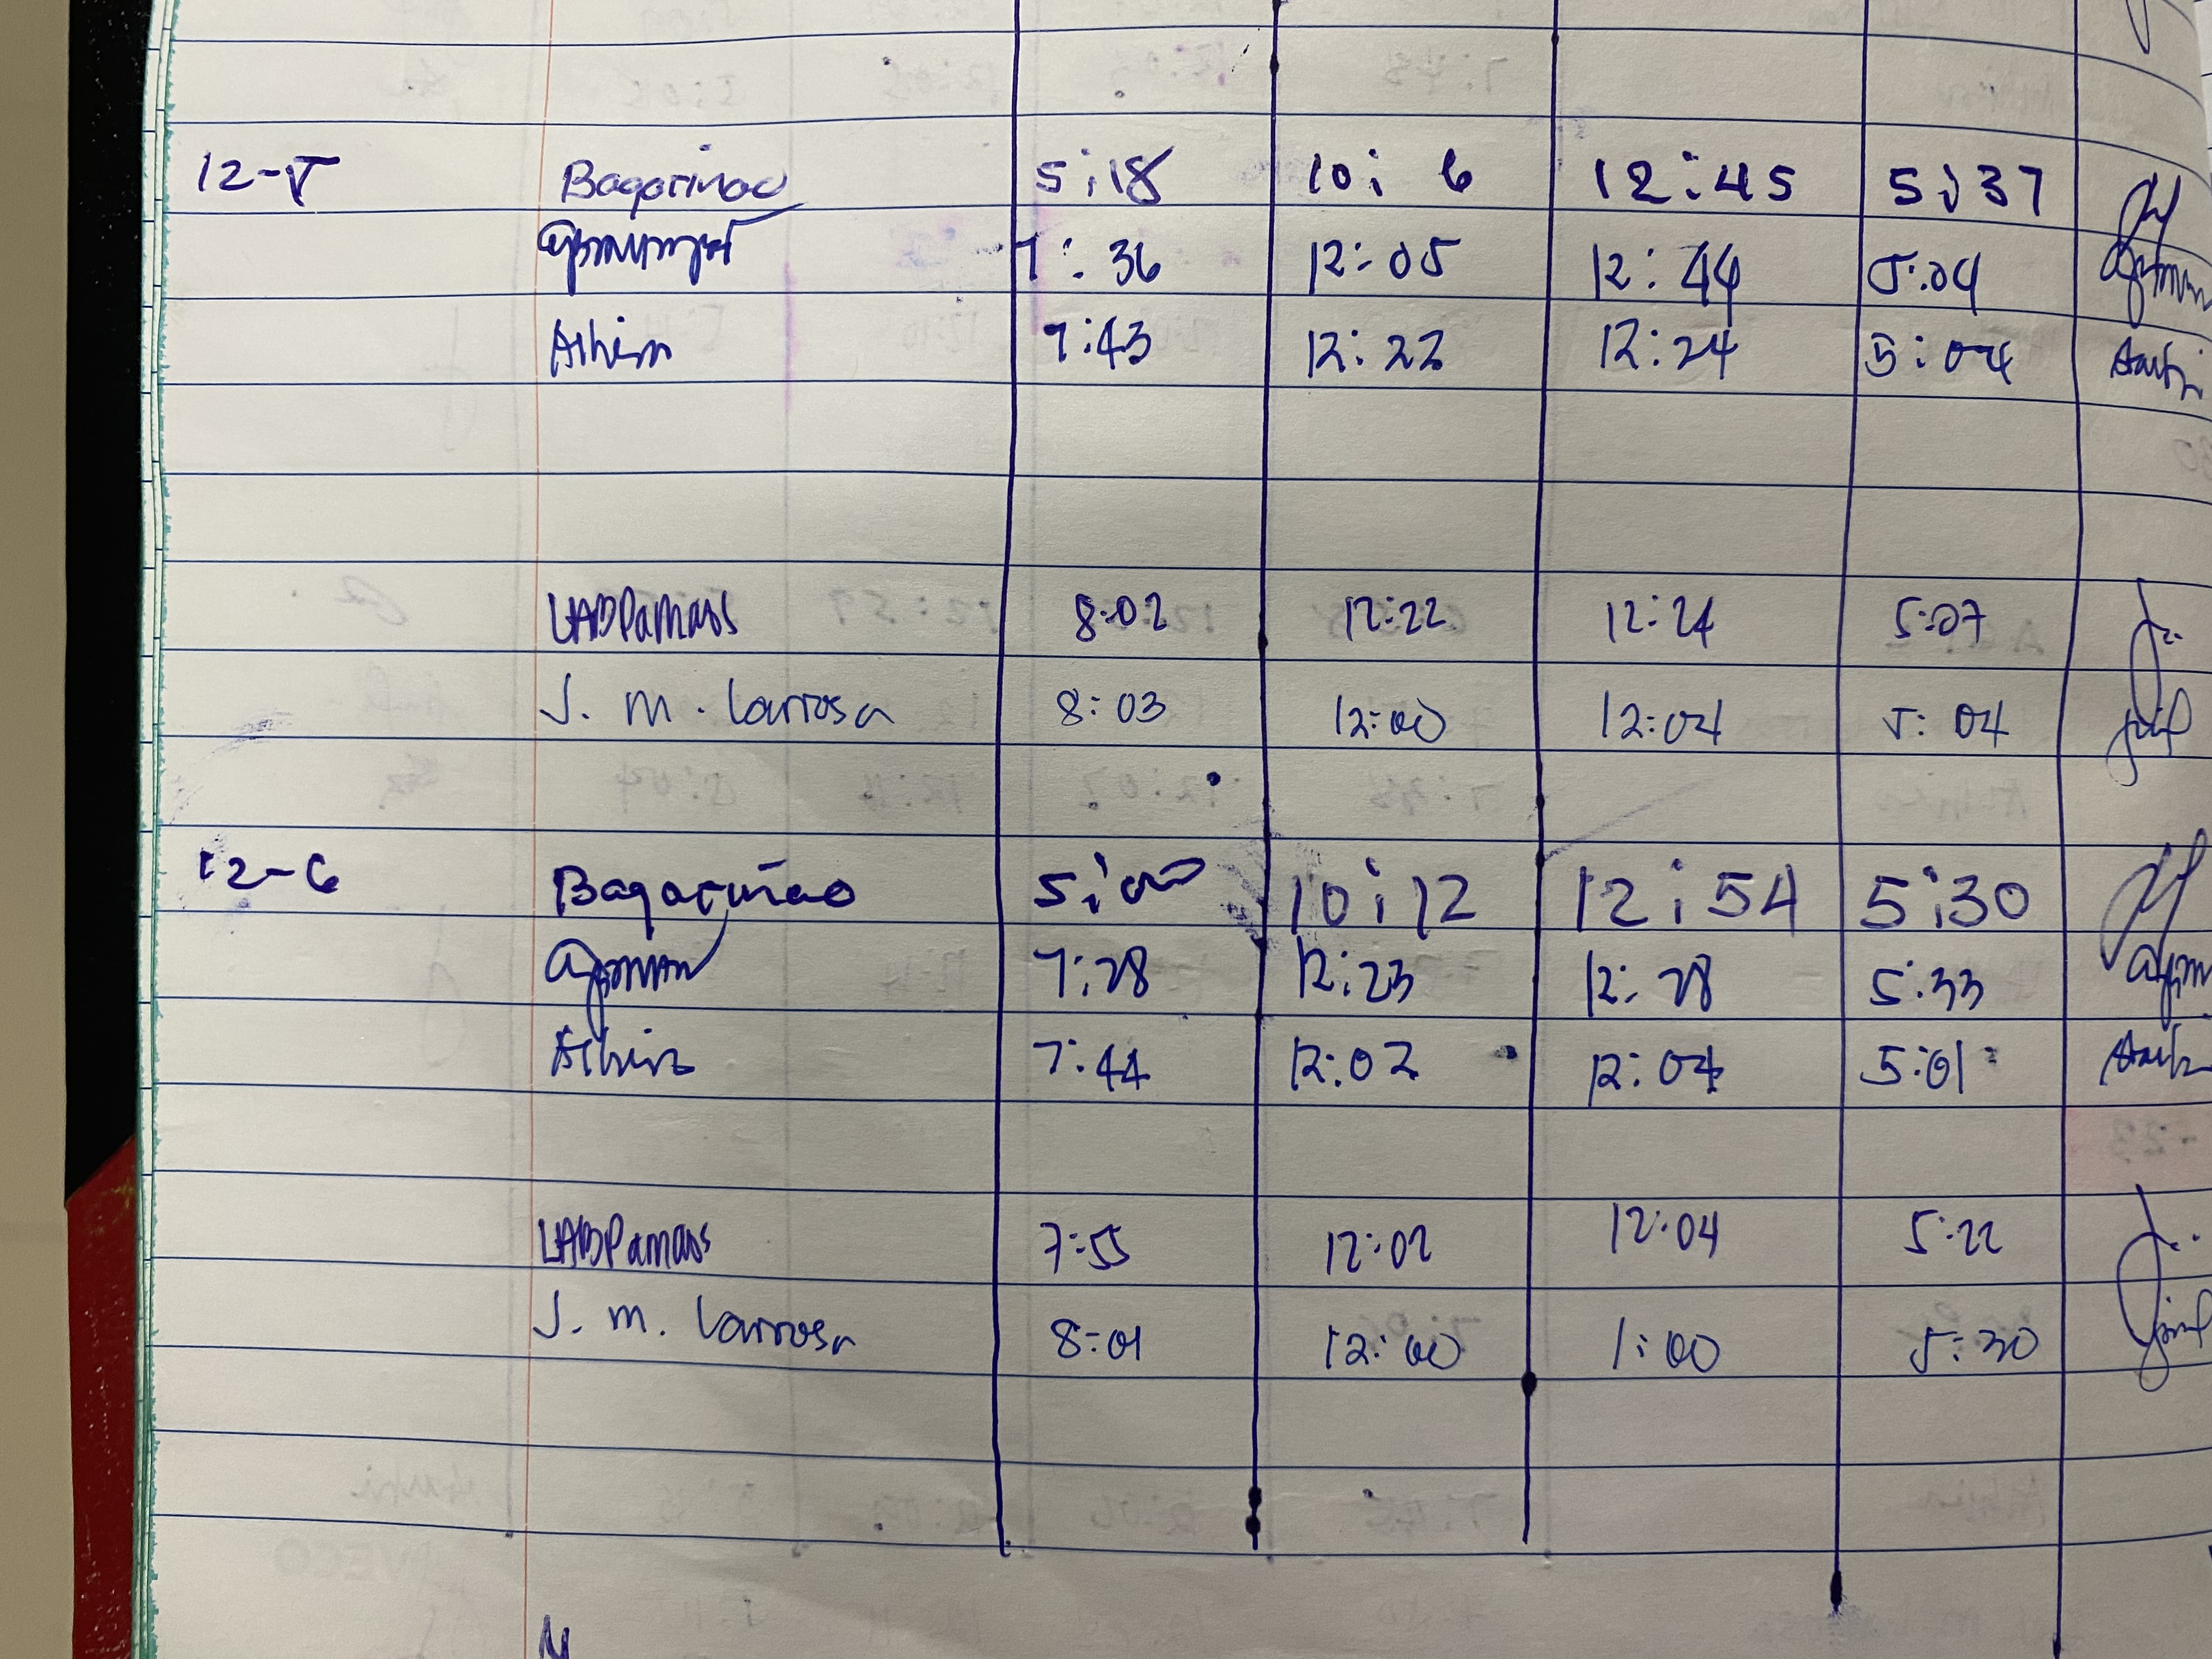 12-5 Bagarinao 5:18 10: 6 12:45 5:37
7: 36 12:05 12:44 5:04
Athena 7:43 12:22 12:24 5:04
LABPamaos 8:02 12:22 12:24 5:07
J. M. Larrosa 8:03 12:00 12:04 5:04
12-6 Bagariñao 5:00 10:12 12:54 5:30
7:28 12:23 12:28 5:33
7:44 12:02 12:04 5:01
LABPamaos 7:55 12:02 12:04 5:22
J. M. Larrosa 8:01 12:00 1:00 5:30